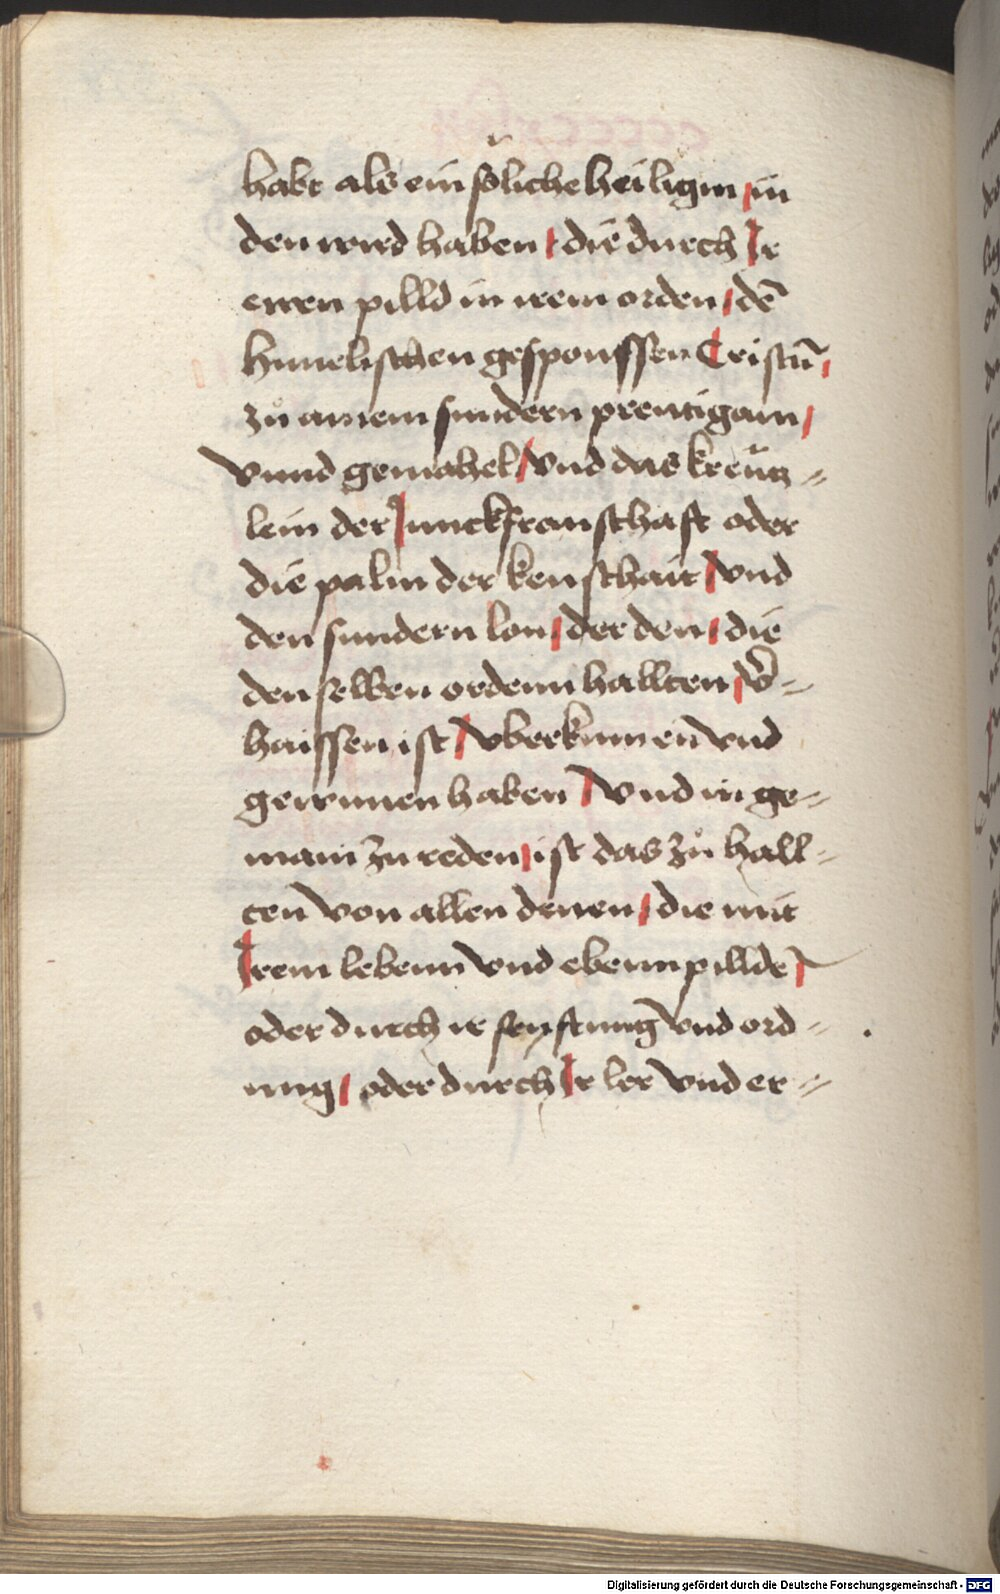 habt als ein söliche heiligin / in
den wird haben / die durch Ir
erren pilld in irem orden / dē
himelischen gesponssen Cristū /
zů ainem sundern preutigam /
vnnd gemahel / vnd das kreütz=
lein der Junckfrauschaft oder
die palm der keuschait / vnd
den sundern lon / der den / die
den selben ordenn hallten / v̄=
haissen ist / vberkumen vnd
gewunnen haben / Vnd in ge=
main zu reden / ist das zů hall=
ten von allen denen / die mit
Irem lebenn vnd ebennpillde /
oder durch ir senftung vnd ord=
nung / oder durch Ir ler vnd er=
Digitalisierung gefördert durch die Deutsche Forschungsgemeinschaft - DFG